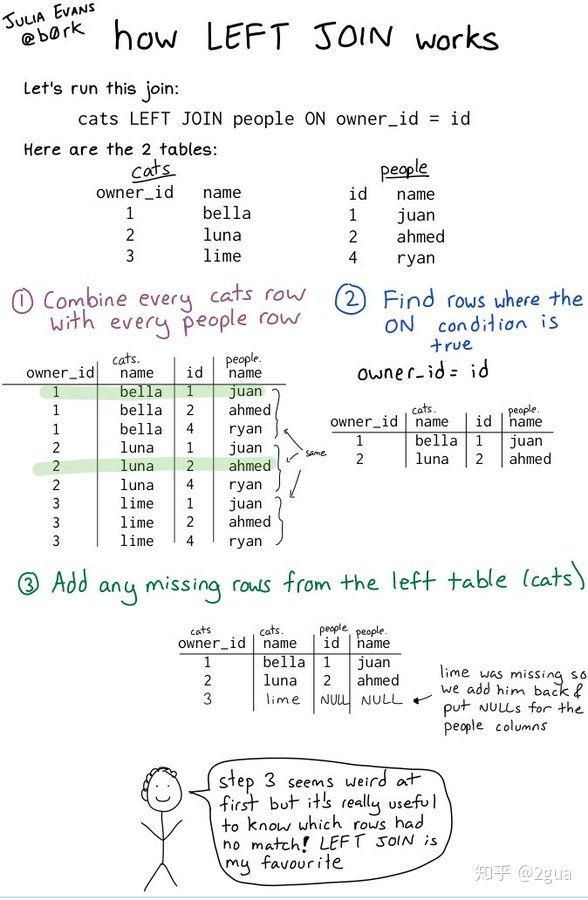 JULIA EVANS
@b0rk
how LEFT JOIN works
Let's run this join:
cats LEFT JOIN people ON owner_id = id
Here are the 2 tables:
cats
owner_id name
1 bella
2 luna
3 lime
people
id name
1 juan
2 ahmed
4 ryan
① Combine every cats row
with every people row
cats. people.
owner_id name id name
1 bella 1 juan
1 bella 2 ahmed
1 bella 4 ryan
2 luna 1 juan
2 luna 2 ahmed
2 luna 4 ryan
3 lime 1 juan
3 lime 2 ahmed
3 lime 4 ryan
same
② Find rows where the
ON condition is
true
owner_id = id
cats. people.
owner_id name id name
1 bella 1 juan
2 luna 2 ahmed
③ Add any missing rows from the left table (cats)
cats cats. people people.
owner_id name id name
1 bella 1 juan
2 luna 2 ahmed
3 lime NULL NULL
lime was missing so
we add him back &
put NULLs for the
people columns
step 3 seems weird at
first but it's really useful
to know which rows had
no match! LEFT JOIN is
my favourite
知乎 @2gua